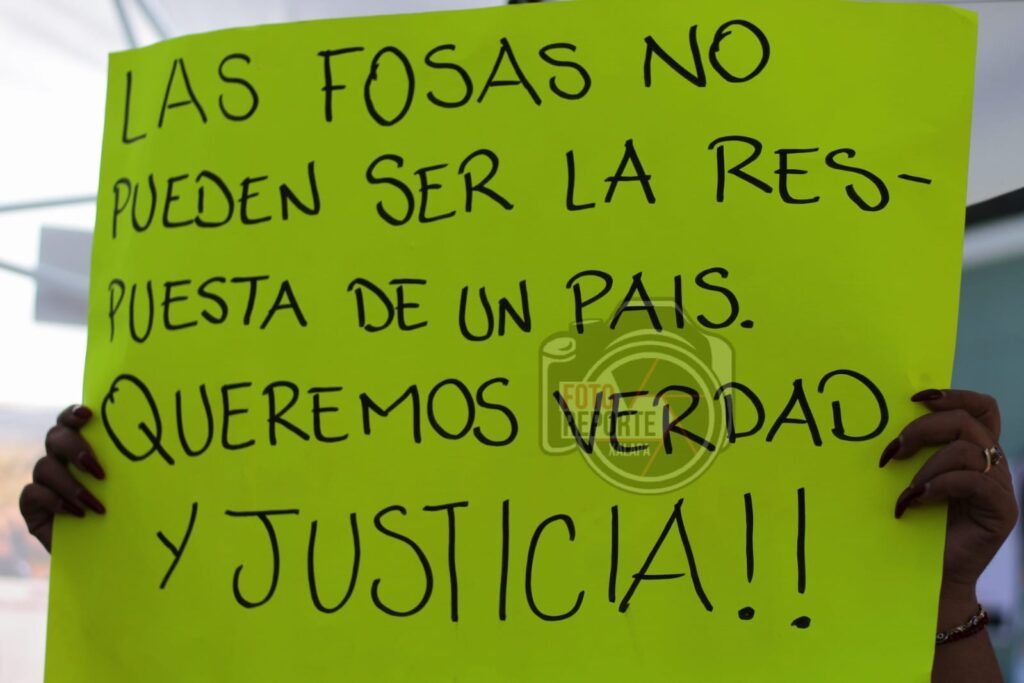 LAS FOSAS NO
PUEDEN SER LA RES-
PUESTA DE UN PAIS.
QUEREMOS VERDAD
Y JUSTICIA!!
FOTO
REPORTE
XALAPA